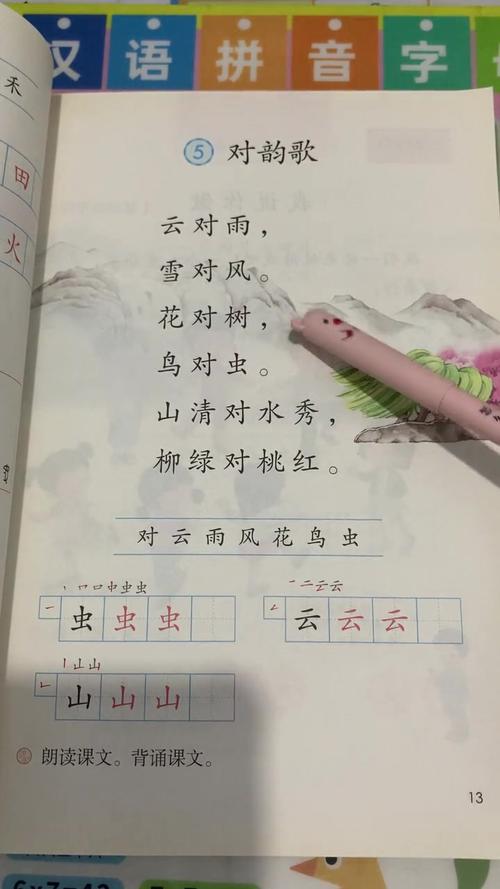 汉语拼音字
禾
田
火
5 对韵歌
云对雨，
雪对风。
花对树，
鸟对虫。
山清对水秀，
柳绿对桃红。
对云雨风花鸟虫
虫虫虫
云云云
山山山
朗读课文。背诵课文。
13
6x7=42